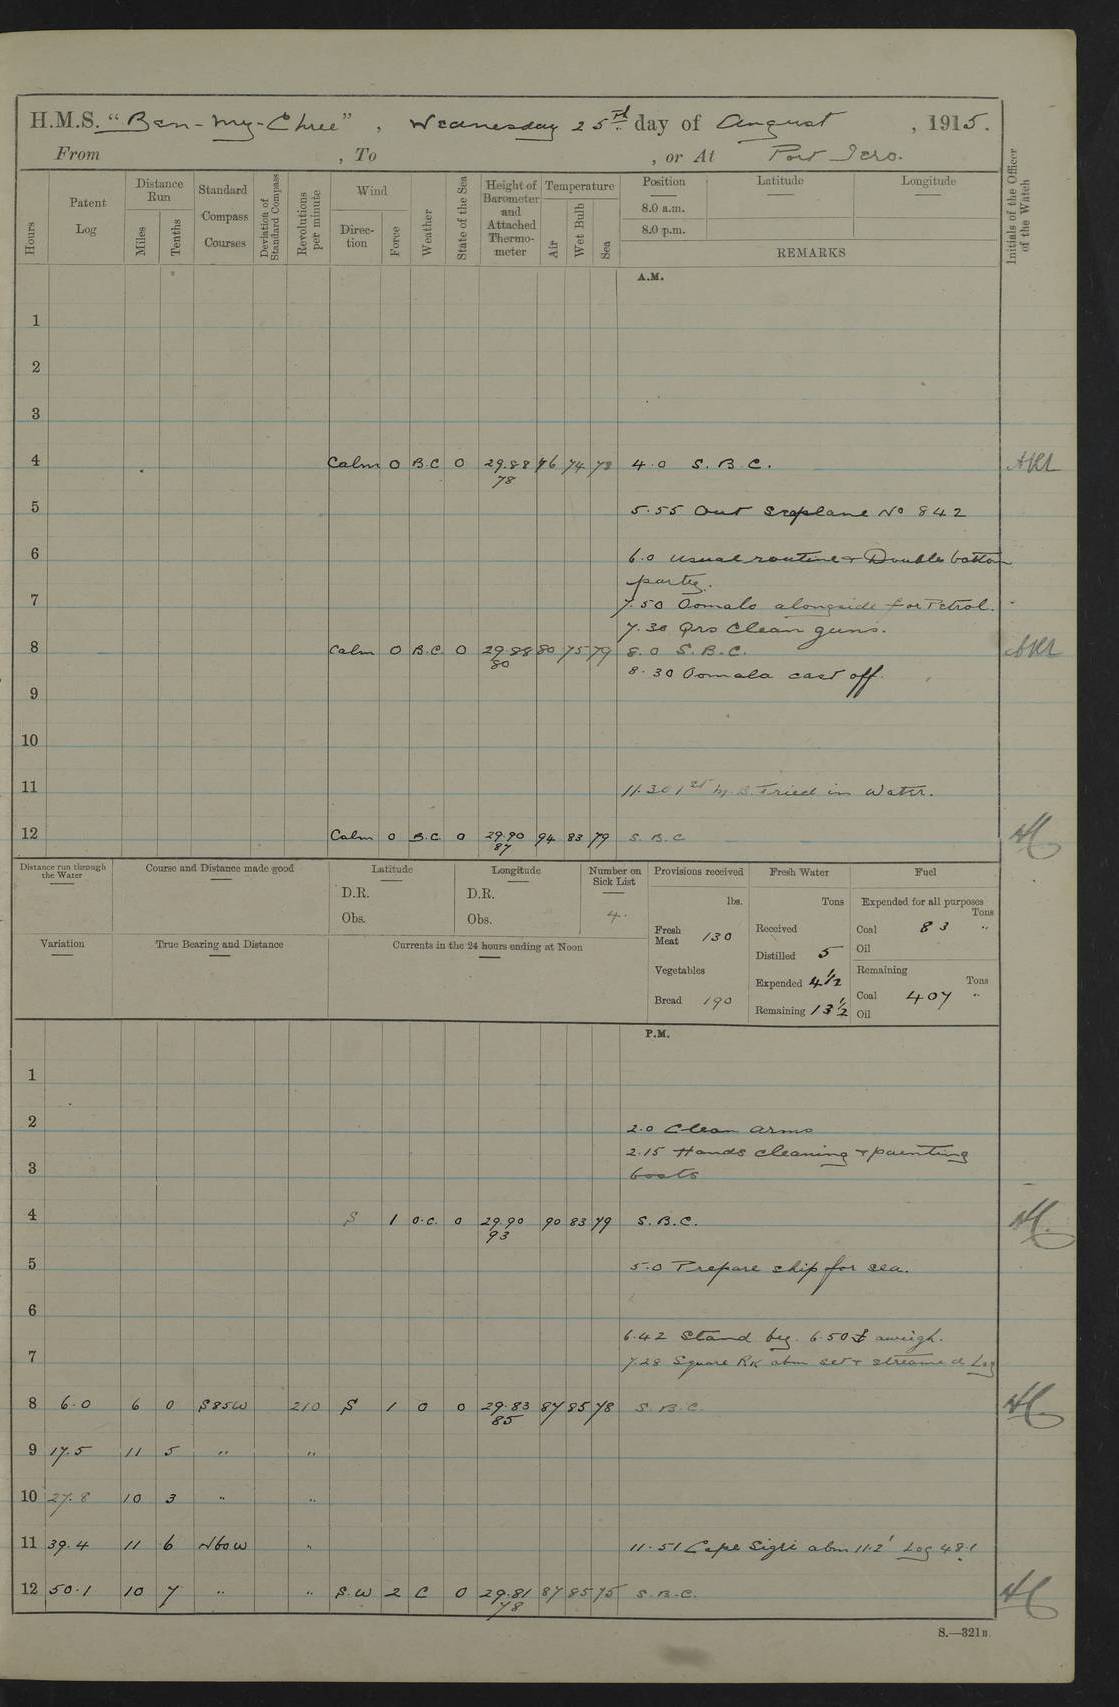 H.M.S. "Ben-My-Chree", Wednesday 25th day of August, 1915.
From , To , or At Port Iero.
Hours
Patent Log
Distance Run
Miles
Tenths
Standard Compass Courses
Deviation of Standard Compass
Revolutions per minute
Wind
Direction
Force
Weather
State of the Sea
Height of Barometer and Attached Thermometer
Temperature
Air
Wet Bulb
Sea
Position
8.0 a.m.
8.0 p.m.
Latitude
Longitude
REMARKS
Initials of the Officer of the Watch
A.M.
1
2
3
4 Calm 0 B.C 0 29.88 76 74 78 4.0 S.B.C.
78
5 5.55 Out Seaplane No 842
6 6.0 usual routine + Double bottom
party.
7 7.50 Oomala alongside for Petrol.
7.30 Qrs Clean guns.
8 Calm 0 B.C. 0 29.88 80 75 79 8.0 S.B.C.
80
8.30 Oomala cast off.
9
10
11 11.30 1st M.B. Tried in Water.
12 Calm 0 B.C. 0 29.90 94 83 79 S.B.C
87
Distance run through the Water
Course and Distance made good
Latitude
D.R.
Obs.
Longitude
D.R.
Obs.
Number on Sick List
4.
Provisions received
lbs.
Fresh Meat 130
Vegetables
Bread 190
Fresh Water
Tons
Received
Distilled 5
Expended 4½
Remaining 13½
Fuel
Expended for all purposes
Tons
Coal 83 "
Oil
Remaining
Tons
Coal 407 "
Oil
Variation
True Bearing and Distance
Currents in the 24 hours ending at Noon
P.M.
1
2 2.0 Clean arms
2.15 Hands cleaning + painting
3 boats
4 S 1 O.C. 0 29.90 90 83 79 S.B.C.
93
5 5.0 Prepare ship for sea.
6
6.42 Stand by. 6.50 ⚓ aweigh.
7 7.28 Square Rk abm set + streamed Log
8 6.0 6 0 S85W 210 S 1 0 0 29.83 87 85 78 S.B.C.
85
9 17.5 11 5 " "
10 27.8 10 3 " "
11 39.4 11 6 N60W " 11.51 Cape Sigri abm 11.2' Log 48.1
12 50.1 10 7 " " S.W 2 C 0 29.81 87 85 75 S.B.C.
78
S.—321B.